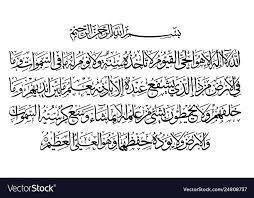 بسم الله الرحمن الرحيم
الله لا إله إلا هو الحي القيوم لا تأخذه سنة ولا نوم له ما في السموات وما
في الأرض من ذا الذي يشفع عنده إلا بإذنه يعلم ما بين أيديهم وما
خلفهم ولا يحيطون بشيء من علمه إلا بما شاء وسع كرسيه السموات
والأرض ولا يؤده حفظهما وهو العلي العظيم
VectorStock®
VectorStock.com/24808737